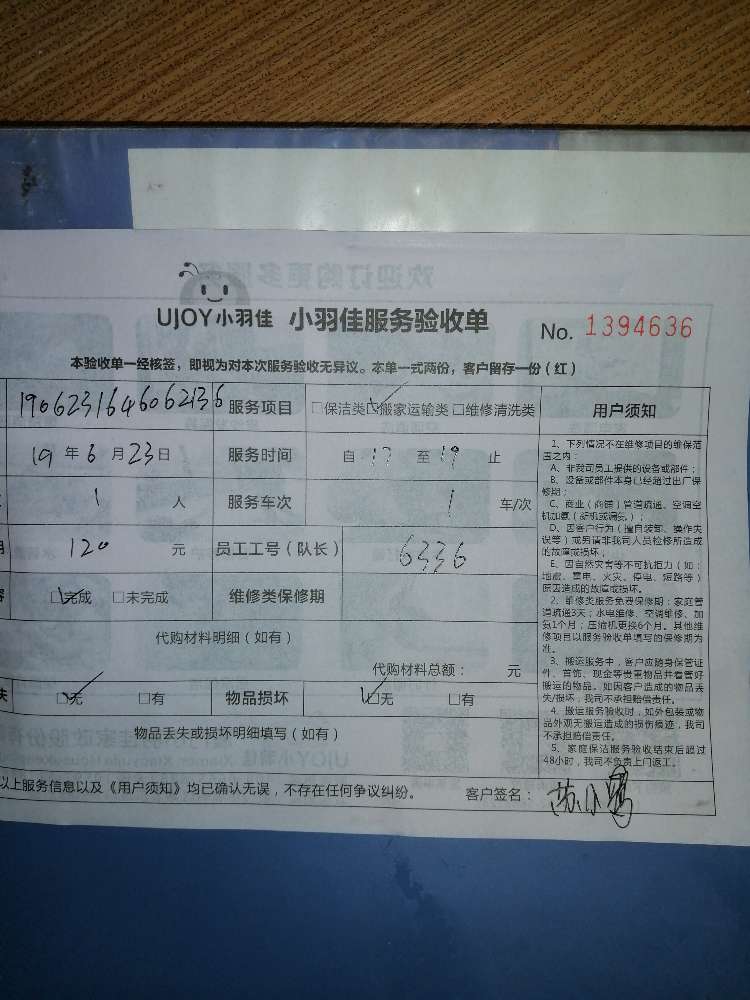 UJOY小羽佳 小羽佳服务验收单 No. 1394636
本验收单一经核签，即视为对本次服务验收无异议。本单一式两份，客户留存一份（红）
1906231646062136 服务项目 □保洁类 ☑搬家运输类 □维修清洗类 用户须知
19 年 6 月 23 日 服务时间 自 17 至 19 止
1 人 服务车次 1 车/次
120 元 员工工号（队长） 6336
☑完成 □未完成 维修类保修期
代购材料明细（如有）
代购材料总额： 元
失 ☑无 □有 物品损坏 ☑无 □有
物品丢失或损坏明细填写（如有）
以上服务信息以及《用户须知》均已确认无误，不存在任何争议纠纷。 客户签名：
1、下列情况不在维修项目的维保范
围之内：
A、非我司员工提供的设备或部件；
B、设备或部件本身已经超过出厂保
修期；
C、商业（商铺）管道疏通、空调空
机加氨（新机或调氨）；
D、因客户行为（擅自装卸、操作失
误等）或另请非我司人员检修所造成
的故障或损坏；
E、因自然灾害等不可抗拒力（如：
地震、雷电、火灾、停电、短路等）
原因造成的故障或损坏。
2、维修类服务免费保修期：家庭管
道疏通3天；水电维修、空调维修、加
氨1个月；压缩机更换6个月。其他维
修项目以服务验收单填写的保修期为
准。
3、搬运服务中，客户应随身保管证
件、首饰、现金等贵重物品并看管好
搬运的物品。如因客户造成的物品丢
失/损坏，我司不承担赔偿责任。
4、搬运服务验收时，如外包装或物
品外观无搬运造成的损伤痕迹，我司
不承担赔偿责任。
5、家庭保洁服务验收结束后超过
48小时，我司不负责上门返工。
欢迎订购更多服务